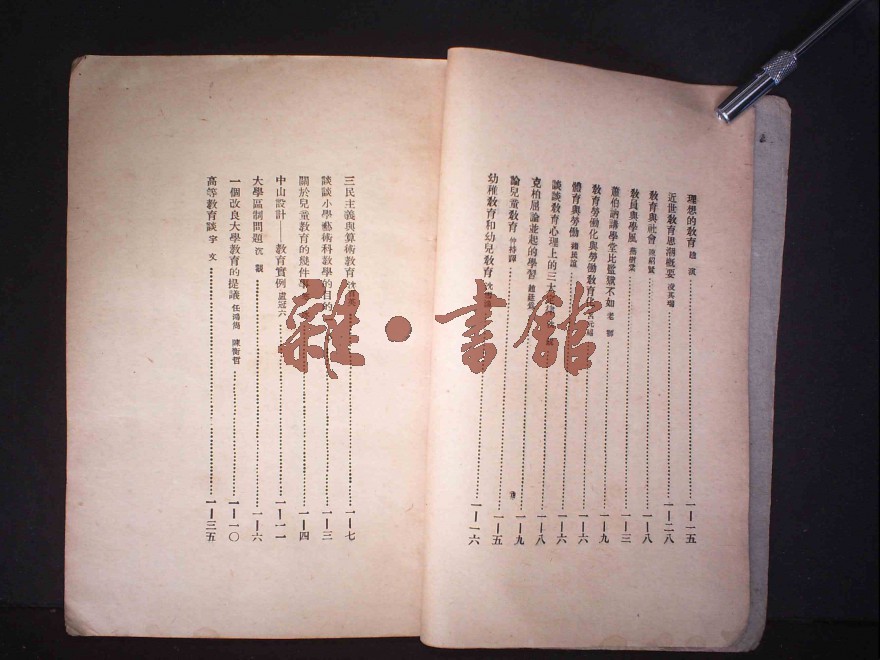 理想的教育 趙演 一—一五
近世教育思潮概要 一—二八
教育與社會 一—八
教員與學風 一—三
蕭伯訥講學堂比監獄不如 老 一—九
教育勞働化與勞働教育 一—六
體育與勞働 褚民誼 一—六
談談教育心理上的三大 一—八
克柏屈論並起的學習 一—九
論兒童教育 一—五
幼稚教育和幼兒教育 一—一六
三民主義與算術教育 一—七
談談小學藝術科教學的目的 一—三
關於兒童教育的幾件 一—四
中山設計——教育實例 盧冠六 一—二一
大學區制問題 沈觀 一—六
一個改良大學教育的提議 任鴻雋 陳衡哲 一—一〇
高等教育談 宇文 一—三五
雜·書館